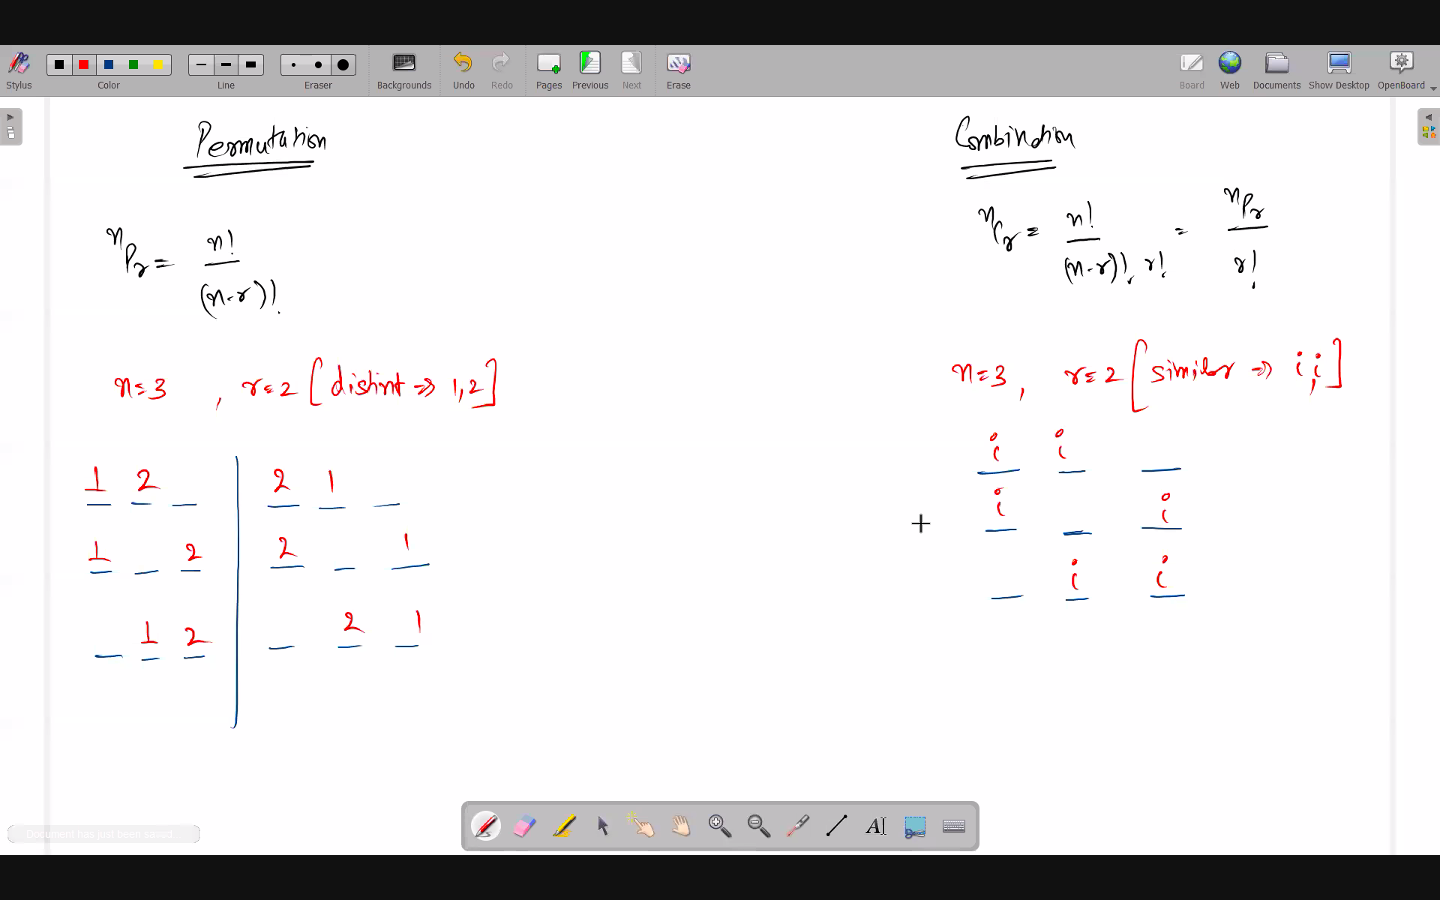 Stylus
Color
Line
Eraser
Backgrounds
Undo
Redo
Pages
Previous
Next
Erase
Board
Web
Documents
Show Desktop
OpenBoard
Permutation
ⁿPr = n! / (n-r)!
n=3, r=2 [distint => 1,2]
1 2 _ | 2 1 _
1 _ 2 | 2 _ 1
_ 1 2 | _ 2 1
Combination
ⁿCr = n! / (n-r)! r! = ⁿPr / r!
n=3, r=2 [similar => i,i]
i i _
i _ i
_ i i
Document has just been saved